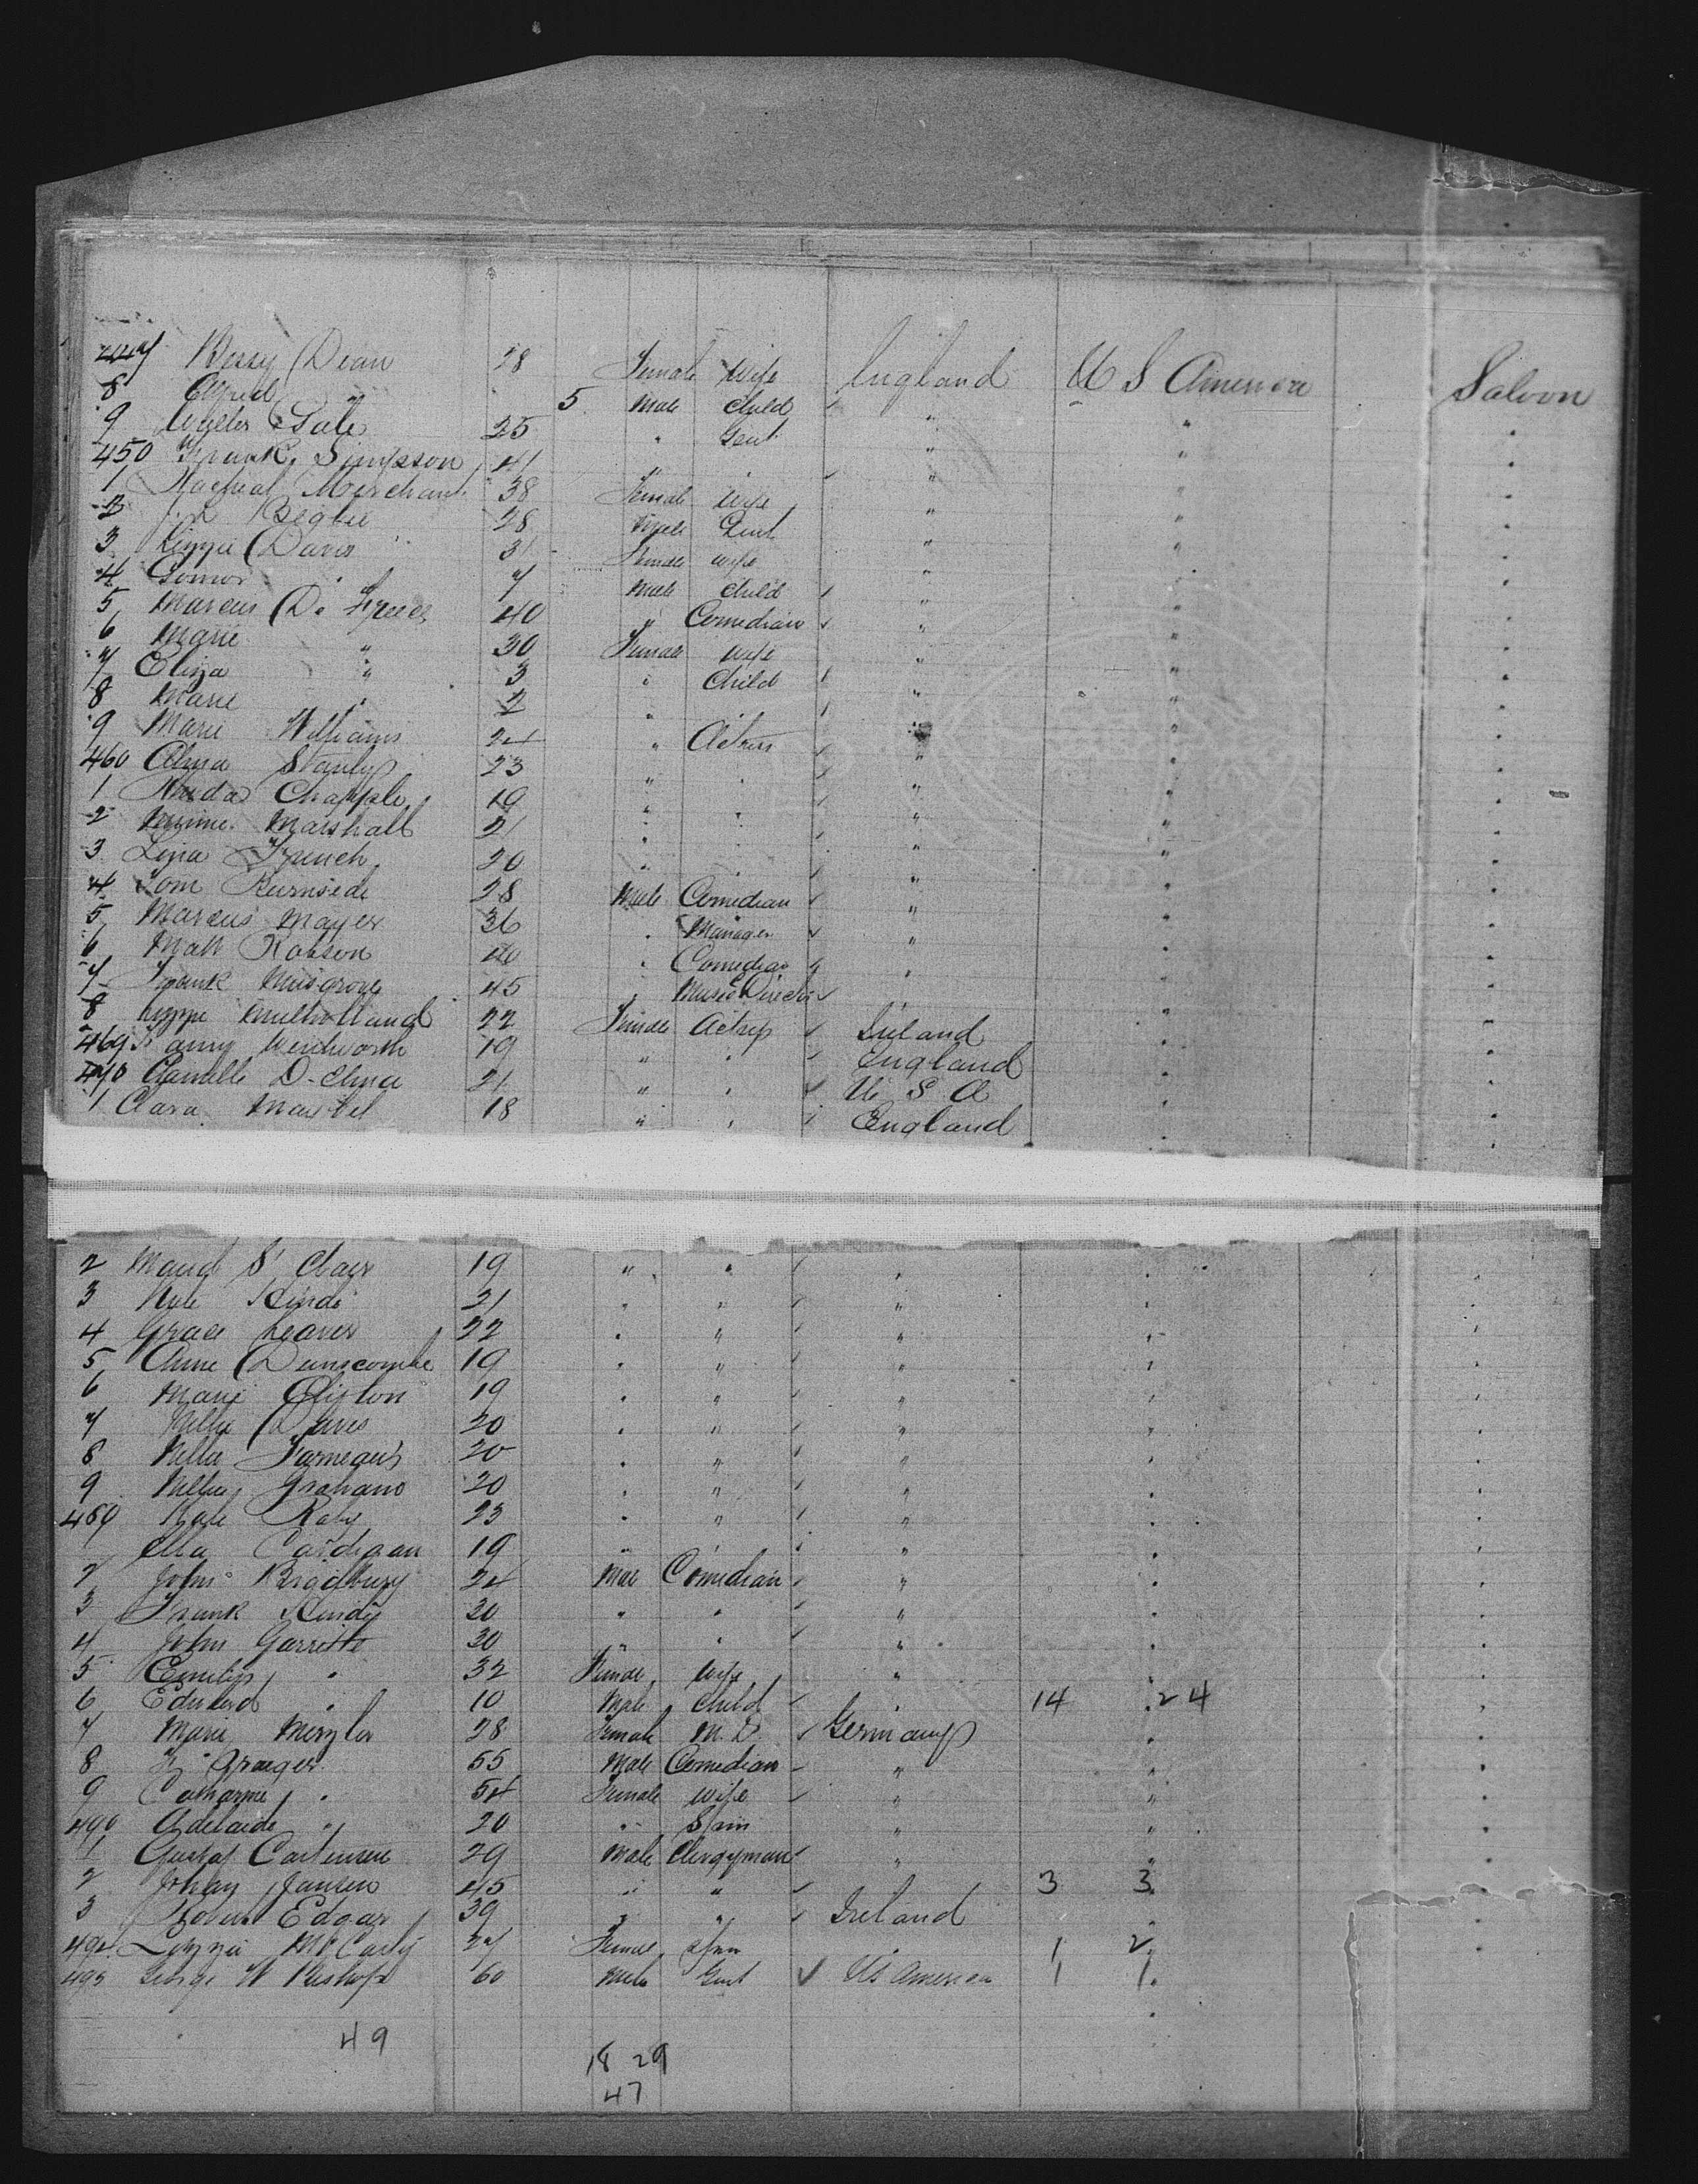 447 Bessy Dean 28 Female Wife England U S America Saloon
8 Alfred " 5 Male Child " " "
9 Walter Sale 25 " Gent " " "
450 Frank Simpson 41 " " " " "
1 Merchant 38 Female Wife " " "
2 Begbie 28 Male Gent " " "
3 Lizzie Davis 31 Female Wife " " "
4 " 7 Male Child " " "
5 Marcus De 40 " Comedian " " "
6 Marie " 30 Female Wife " " "
7 Eliza " 3 " Child " " "
8 Marie " 2 " " " " "
9 Marie Williams 24 " Actress " " "
460 Alma Stanly 23 " " " " "
1 Chapple 19 " " " " "
2 Marshall 21 " " " " "
3 French 20 " " " " "
4 Tom Burnside 28 Male Comedian " " "
5 Marcus Mayer 36 " Manager " " "
6 Matt Robson 40 " Comedian " " "
7 Frank Musgrove 45 " Music Director " " "
8 Lizzie Mulholland 22 Female Actress Ireland " "
469 Fanny Wentworth 19 " " England " "
470 Camille D-elmar 21 " " U S A " "
1 Clara Maybel 18 " " England " "
2 Maud St Clair 19 " " " " "
3 21 " " " " "
4 Grace Leaver 22 " " " " "
5 Anne Dunscombe 19 " " " " "
6 Marie Clifton 19 " " " " "
7 Nellie Davis 20 " " " " "
8 Nella 20 " " " " "
9 Nellie Graham 20 " " " " "
480 Kate Raby 23 " " " " "
Ella Cardigan 19 " " " " "
2 John Bradbury 24 Male Comedian " " "
3 Frank 30 " " " " "
4 John Garretto 30 " " " " "
5 " 32 Female Wife " " "
6 Edward " 10 Male Child " 14 24 "
7 Marie Merzler 28 Female M.D. Germany " "
8 Graeger 55 Male Comedian " " "
9 Catharine " 54 Female Wife " " "
490 Adelaide " 20 " Spin " " "
1 Gustaf 29 Male Clergyman " " "
2 Johan Jansen 45 " " " 3 3 "
3 Robert Edgar 39 " " Ireland " "
494 Lizzie McCarty 27 Female Spin " 1 2 "
495 George W Bishop 60 Male Gent US America 1 1 "
49
18 29
47